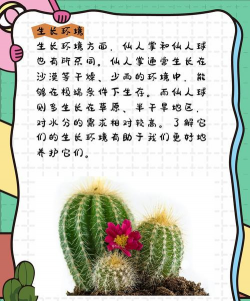 生长环境
生长环境方面，仙人掌和仙人球
也有所不同。仙人掌通常生长在
沙漠等干燥、少雨的环境中，能
够在极端条件下生存。而仙人球
则多生长在草原、半干旱地区，
对水分的需求相对较高。了解它
们的生长环境有助于我们更好地
养护它们。